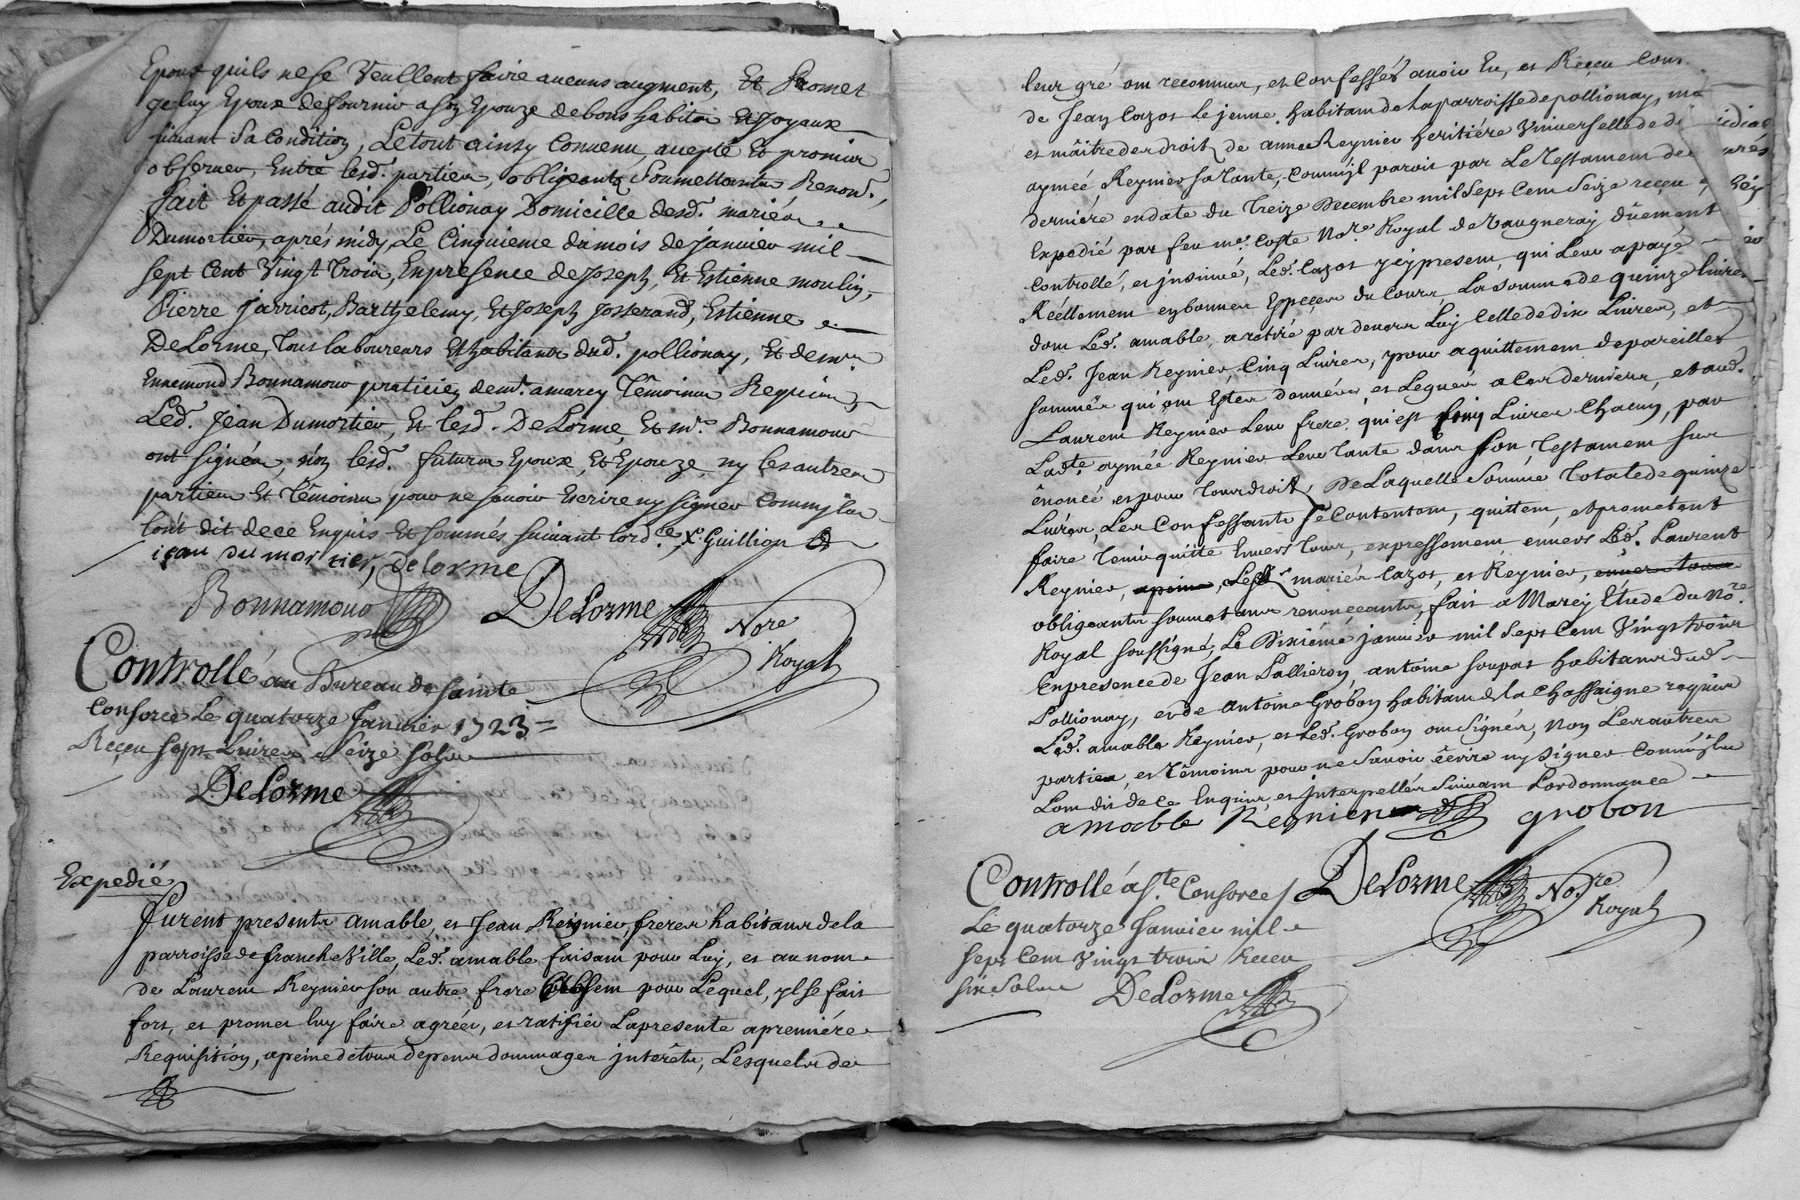 Epoux quils ne se Veullent faire aucuns augment, Et Promet
geluy Epoux de fournir a son Epouze de bons habits Et Joyaux
suivant Sa Condition, Le tout ainsy Convenu, accepté Et promis
observer, Entre lesd. parties, obligeants Soumettants Renonc.
fait Et passé audit Pollionay Domicille desd. mariés
Dumortier, aprés midy, Le Cinquieme du mois de janvier mil
sept Cent Vingt Trois, En presence de Joseph, Et Estienne moulin,
Pierre jarricot, Barthelemy, Et Joseph Josserand, Estienne
DeLorme, Tous laboureurs Et habitants dud. pollionay, Et de mre
Ennemond Bonnamour praticien demt. a marcy Témoins Requis,
Led. Jean Dumortier, Et lesd. DeLorme, Et mre Bonnamour
ont signés, non lesd. futurs Epoux, Et Epouze, ny les autres
parties Et Témoins pour ne sçavoir Escrire ny signer Comm'ils
lont dit de ce Enquis Et sommés suivant lord.ce X. Guillion
jean du mortier, delorme
Bonnamour DeLorme Nore
Royal
Controllé au Bureau de Sainte
Consorce Le quatorze Janvier 1723
Reçu sept Livres Seize sols
DeLorme
Expedié
Furent presents amable, et Jean Reynier freres habitants de la
parroisse de francheville, Led. amable faisant pour Luy, et au nom
de Laurent Reynier son autre frere absent pour Lequel, yl se fait
fort, et promet luy faire agréer, et ratifier Lapresente a premiére
Requisition, apeine de tous depens dommages jnterêts, Lesquels de
leur gré ont reconnu, et Confessés avoir Eu, et Reçeu Com
de Jean Cazot le jeune habitant de la parroisse de pollionay, ma
et mâitre des droits de annee Reynier heritiére Universelle de
aymée Reynier sa Tante, Comm'jl paroit par Le Testament de
derniére en date du Treize Decembre mil sept Cent Seize reçeu
Expedié par feu me. Coste Nore. Royal de Vaugneray dûement
Controllé, et jnsinué, Led. Cazot jcy present, qui Leur a payé
Réellement en bonnes Espeçes du Cours La somme de quinze livres
dont Led. amable, a retiré par devers Luy Celle de dix Livres, et
Led. Jean Reynier, Cinq Livres, pour aquittement de pareilles
sommes qui ont Estes données, et Leguées a Ces derniers, et aud.
Laurent Reynier Leur frere, qui est Cinq Livres Chacun, par
Ladte. aymée Reynier Leur Tante dans son Testament sur
énoncé et pour Tous droits, De Laquelle Somme Totale de quinze
Livres, Les Confessants se Contentent, quittent, et prometent
faire Tenir quitte Envers Tous, expressement envers Led. Laurent
Reynier, apeine, Lesd. mariés Cazot, et Reynier, envers tous
obligeants soumetants renonceants, fait a Marcy Etude du Nore.
Royal soussigné, Le Dixiéme janvier mil Sept Cent Vingt trois
En presence de Jean Pallieron, antoine soupat habitants dud.
Pollionay, et de antoine Grobon habitant de la Chassaigne requis
Led. amable Reynier, et Led. Grobon ont signés, Non Les autres
parties, et Témoins pour ne Savoir écrire ny signer Comm'jls
Lont dit de Ce Enquis, et jnterpellés Suivant Lordonnance
amable Reynier grobon
Controllé a Ste. Consorce DeLorme Nore
Royal
Le quatorze Janvier mil
sept Cent Vingt trois Receu
six Sols
DeLorme